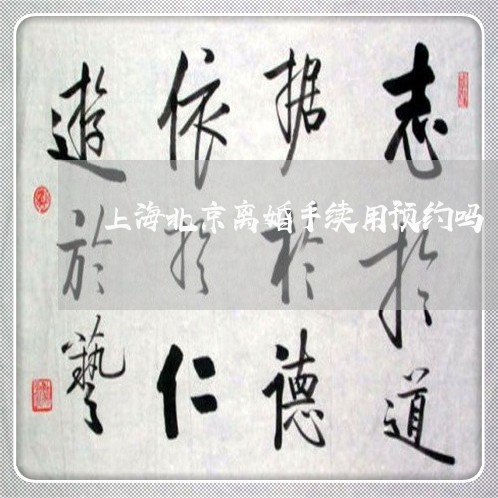 志於道
据於德
依於仁
遊於藝
上海北京离婚手续用预约吗